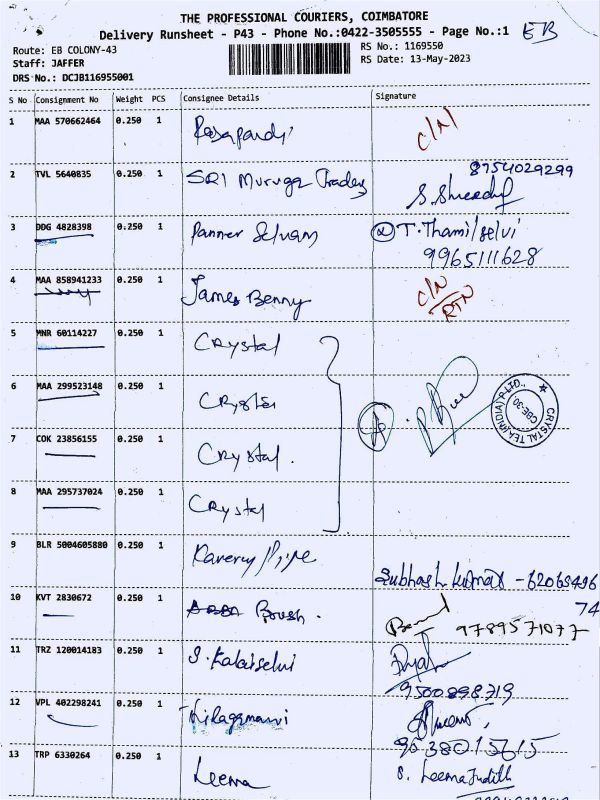 THE PROFESSIONAL COURIERS, COIMBATORE
Delivery Runsheet - P43 - Phone No.:0422-3505555 - Page No.:1 EB
Route: EB COLONY-43
RS No.: 1169550
Staff: JAFFER
RS Date: 13-May-2023
DRS No.: DCJB116955001
S No Consignment No Weight PCS Consignee Details Signature
1 MAA 570662464 0.250 1 Rasapandi C/N
2 TVL 5640835 0.250 1 SRI Muruga Traders 8754029299
3 DDG 4828398 0.250 1 Panner Selvam T. Thamilselvi
9965111628
4 MAA 858941233 0.250 1 James Benny C/N
RTN
5 MNR 60114227 0.250 1 Crystal
6 MAA 299523148 0.250 1 Crystal
CRYSTAL TEX (INDIA) P.LTD., CBE-30.
7 COK 23856155 0.250 1 Crystal.
8 MAA 295737024 0.250 1 Crystal
9 BLR 5004605880 0.250 1 Kavery Pipe
Subhash kumar - 62065496
74
10 KVT 2830672 0.250 1 9789571077
11 TRZ 120014183 0.250 1 S. Kalaiselvi
9500898719
12 VPL 402298241 0.250 1 Thilagamani
9538015615
13 TRP 6330264 0.250 1 Leema S. Leema Judith